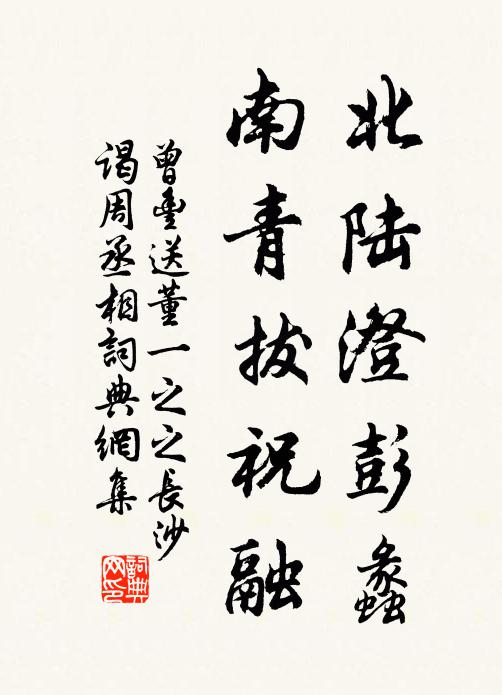 北陆澄彭蠡
南青拔祝融
曾豊送董一之之長沙
謁周丞相詞典網集
詞典
网印